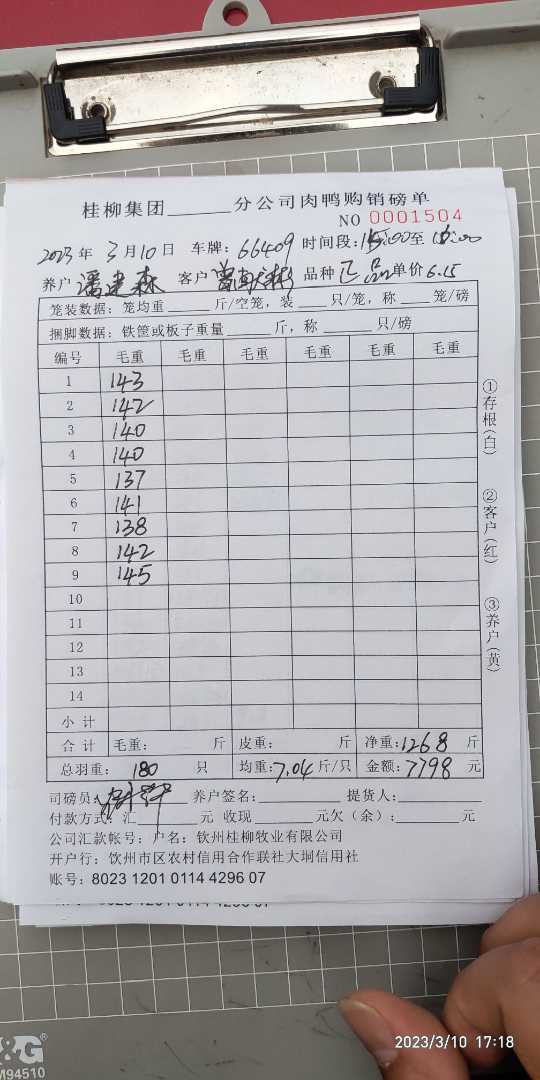 桂柳集团______分公司肉鸭购销磅单
NO 0001504
2023年 3月10日 车牌：66409 时间段：15:00至16:00
养户 潘建森 客户 品种 正品 单价 6.15
笼装数据：笼均重____斤/空笼，装___只/笼，称___笼/磅
捆脚数据：铁筐或板子重量_____斤，称_____只/磅
编号 毛重 毛重 毛重 毛重 毛重 毛重
1 143
2 142
3 140
4 140
5 137
6 141
7 138
8 142
9 145
10
11
12
13
14
小 计
合 计 毛重： 斤 皮重： 斤 净重：1268 斤
总羽重： 180 只 均重：7.04 斤/只 金额：7798 元
司磅员： 养户签名：________ 提货人：________
付款方式：汇________元 收现______元欠（余）：______元
公司汇款帐号：户名：钦州桂柳牧业有限公司
开户行：钦州市区农村信用合作联社大垌信用社
账号：8023 1201 0114 4296 07
①存根（白）
②客户（红）
③养户（黄）
&G
M94510
2023/3/10 17:18